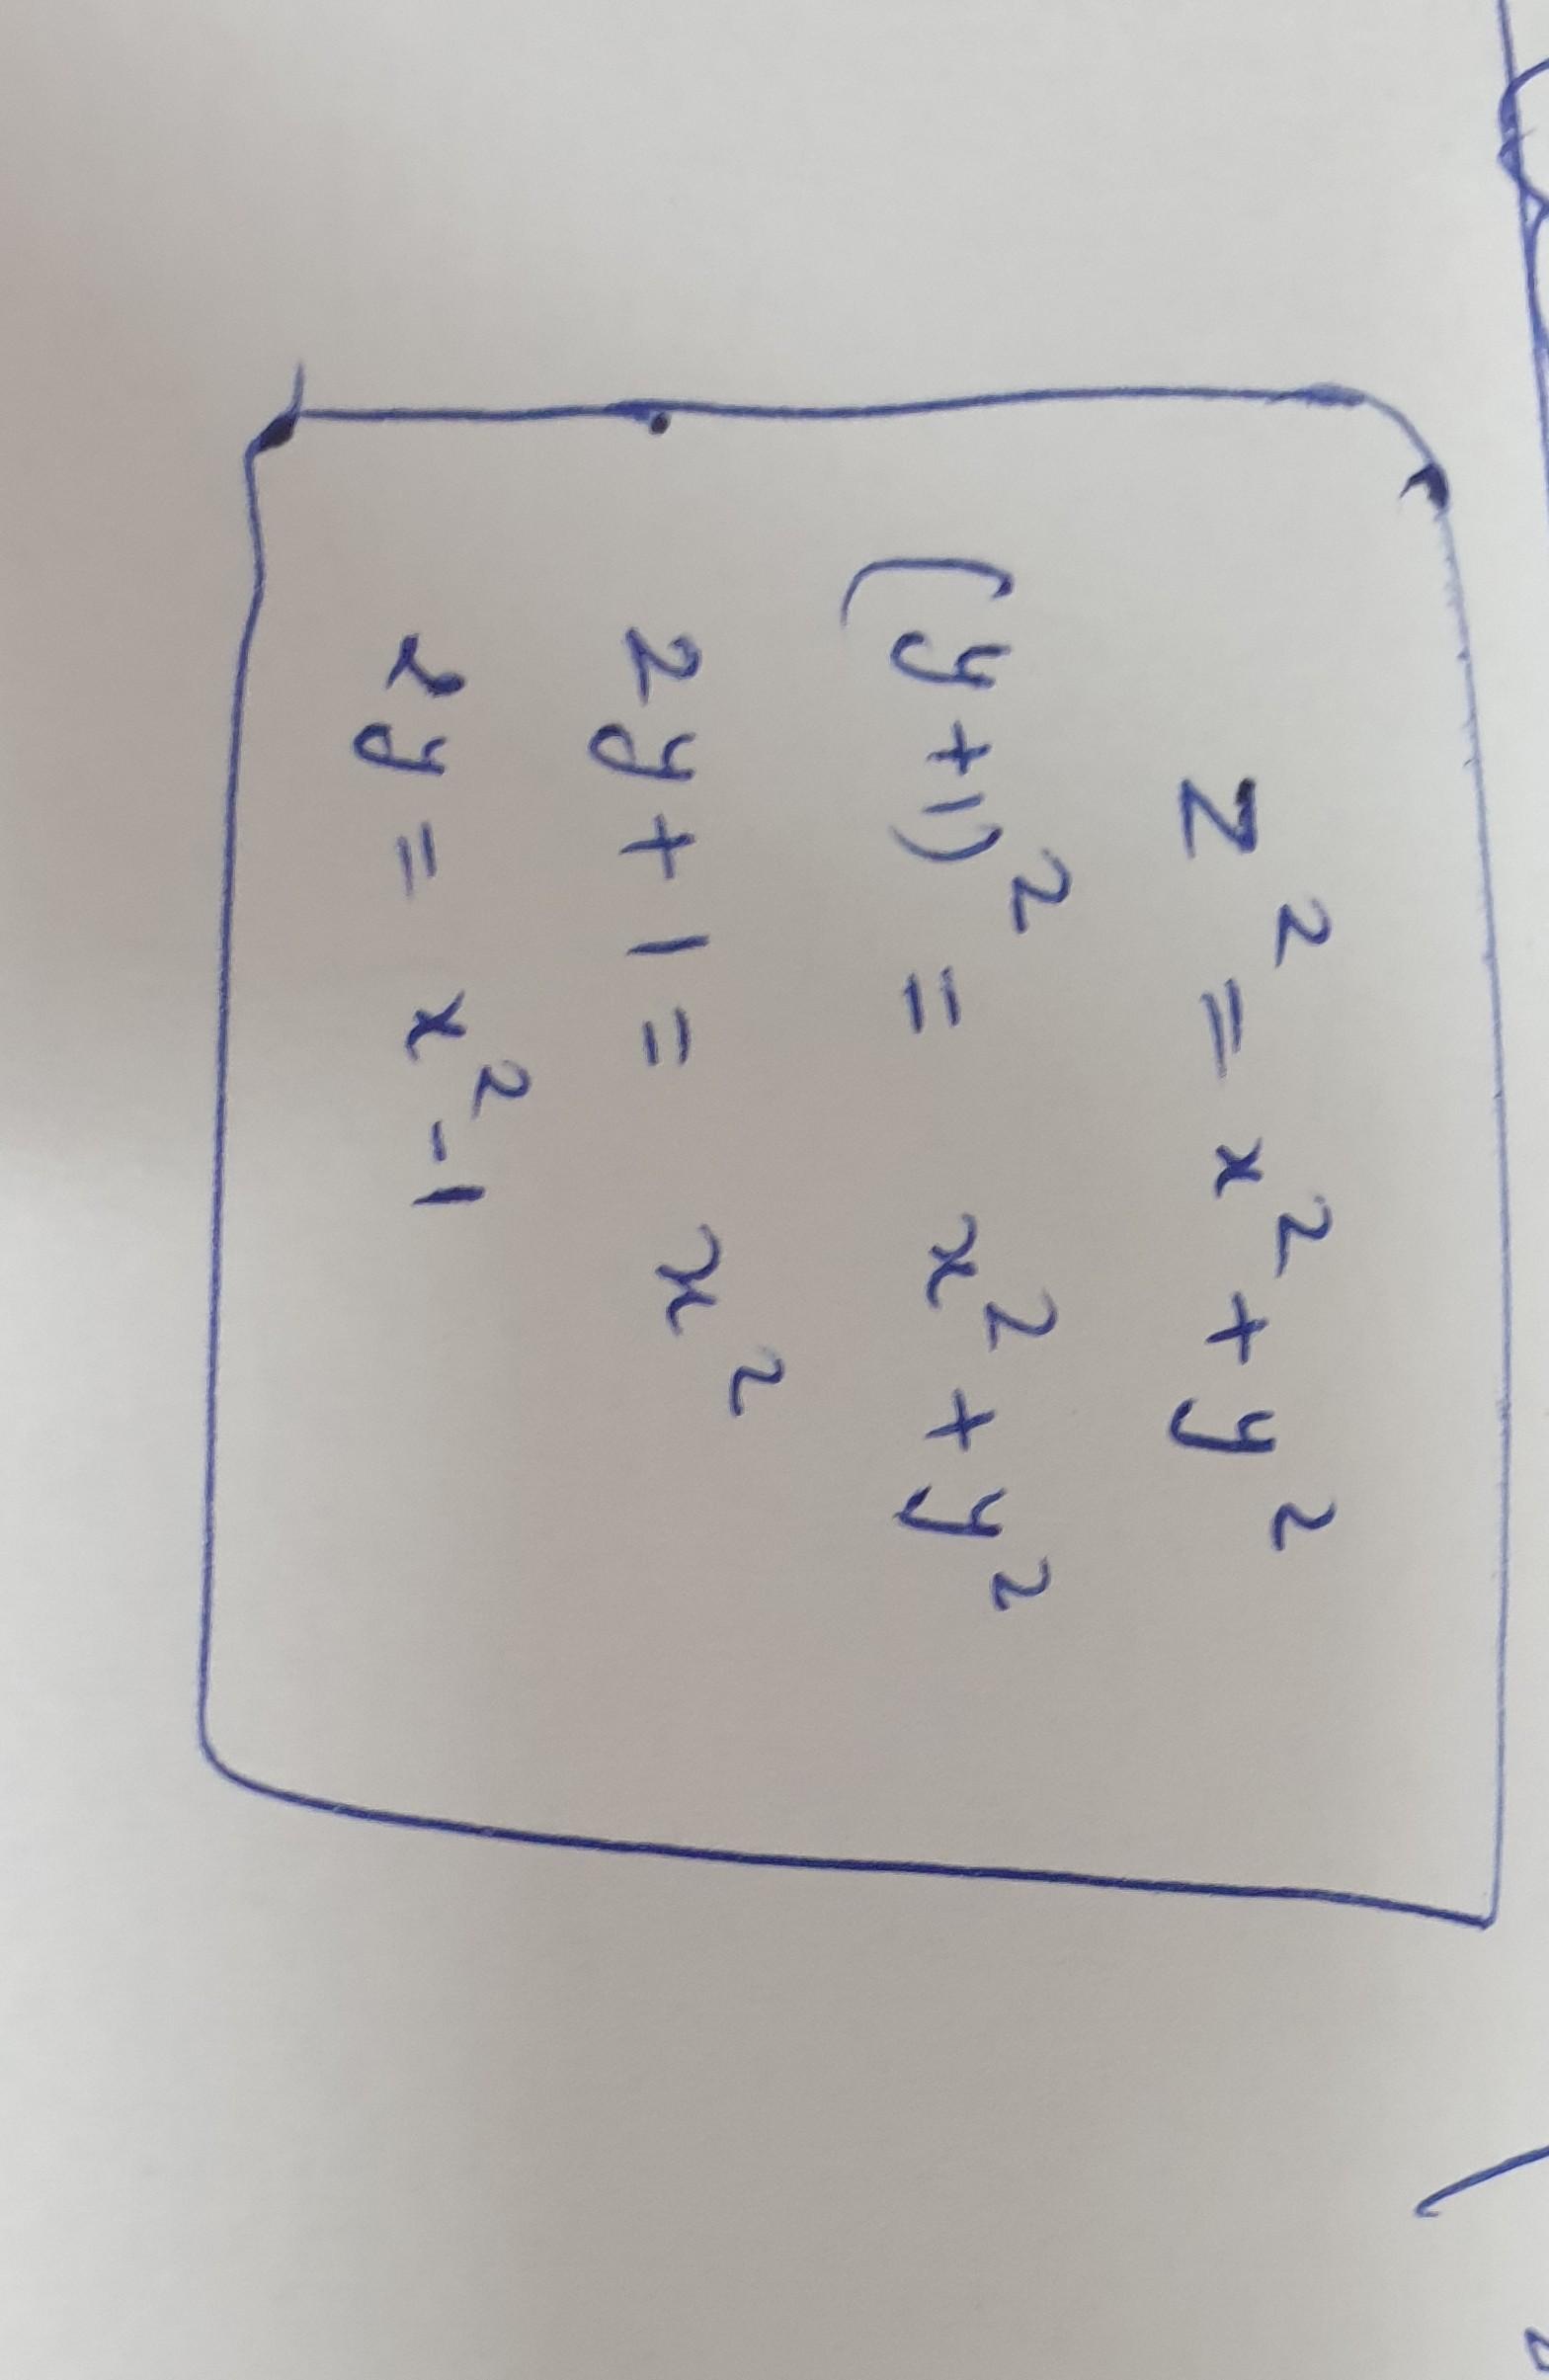 z² = x² + y²
(y+1)² = x² + y²
2y + 1 = x²
2y = x² - 1